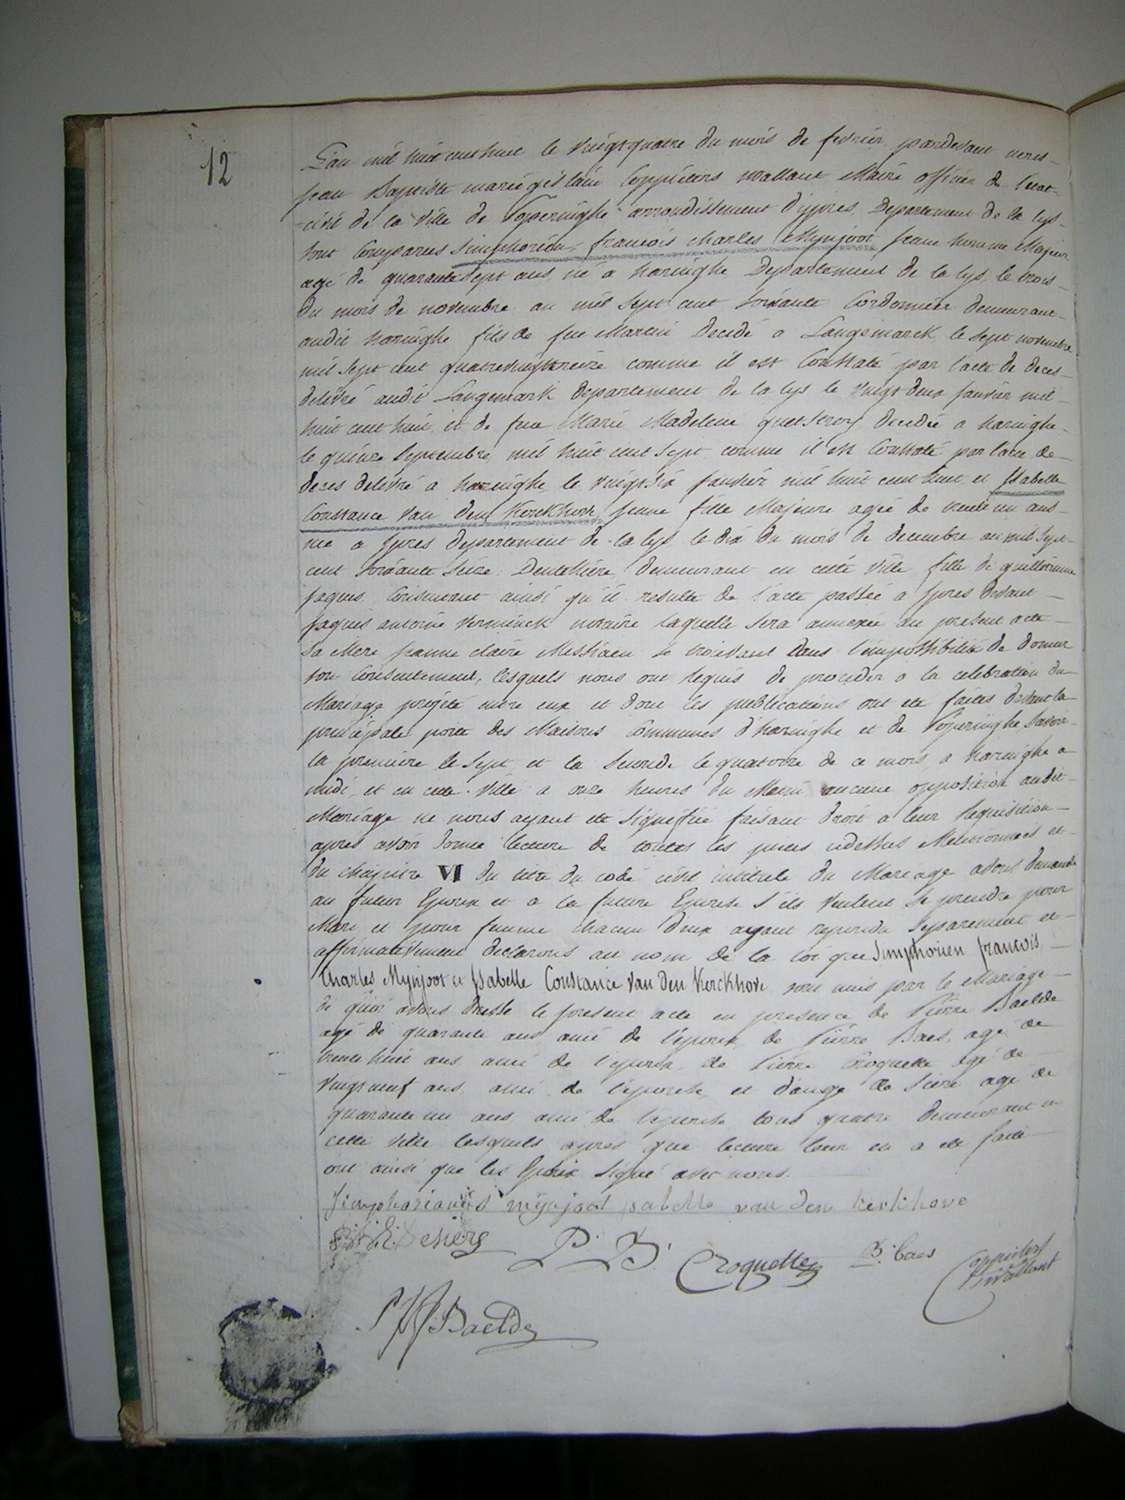 12
L'an mil huit cent huit le vingt quatre du mois de fevrier pardevant nous
jean Baptiste marie gislain Coppieters wallant Maire officier de l'état
civil de la ville de Poperinghe arrondissement d'ypres Departement de la lys
sont Comparus Simphorien françois charles Mynjoot jeune homme Majeur
agé de quarante sept ans né a haringhe Departement de la lys le trois
du mois de novembre an mil sept cent soixante Cordonnier demeurant
audit haringhe fils de feu Martin decedé a Langemarck le sept novembre
mil sept cent quatrevingt treize comme il est Constaté par l'acte de deces
delivré audit Langemark departement de la lys le vingt deux janvier mil
huit cent huit et de feue Marie Madeleine decedée a haringhe
le quinze Septembre mil huit cent sept comme il est Constaté par l'acte de
deces delivré a haringhe le vingt six janvier mil huit cent huit et Isabelle
Constance van den Kerckhove jeune fille Majeure agée de trente un ans
née a Ypres departement de la lys le dix du mois de decembre an mil sept
cent soixante seize Dentelière demeurant en cette ville fille de guillaume
jaques Consentant ainsi qu'il resulte de l'acte passée a Ypres devant
jaques antoine notaire laquelle sera annexée au present acte
sa Mere jeanne claire Messiaen se trouvant dans l'impossibilité de donner
son Consentement, lesquels nous ont requis de proceder a la celebration du
Mariage projeté entre eux et dont les publications ont eté faites devant la
principale porte des Maisons Communes d'haringhe et de Poperinghe savoir
la premiere le sept et la seconde le quatorze de ce mois, a haringhe a
midi, et en cette ville a onze heures du Matin aucune opposition audit
Mariage ne nous ayant eté signifiée faisant droit a leur requisition
apres avoir donné lecture de toutes les pieces cidessus Mentionnées et
du chapitre VI du titre du code civil intitulé du Mariage avons demandé
au futur Epoux et a la future Epouse s'ils veulent se prendre pour
Mari et pour femme chacun d'eux ayant repondu separement et
affirmativement declarons au nom de la loi que Simphorien françois
Charles Mynjoot et Isabelle Constance van den Kerckhove sont unis par le Mariage
de quoi avons dressé le present acte en presence de Pierre Baelde
agé de quarante ans ami de l'epoux, de Pierre Baes, agé de
trente huit ans ami de l'epouse, de Pierre Croquette agé de
vingt neuf ans, ami de l'epouse et d'ange de agé de
quarante un ans ami de l'epouse tous quatre demeurant en
cette ville lesquels apres que lecture leur en a eté faite
ont ainsi que les Epoux signé avec nous.
mynjoot isabelle van den kerkhove
P. B. Croquette B. baes Coppieters
wallant
Baelde